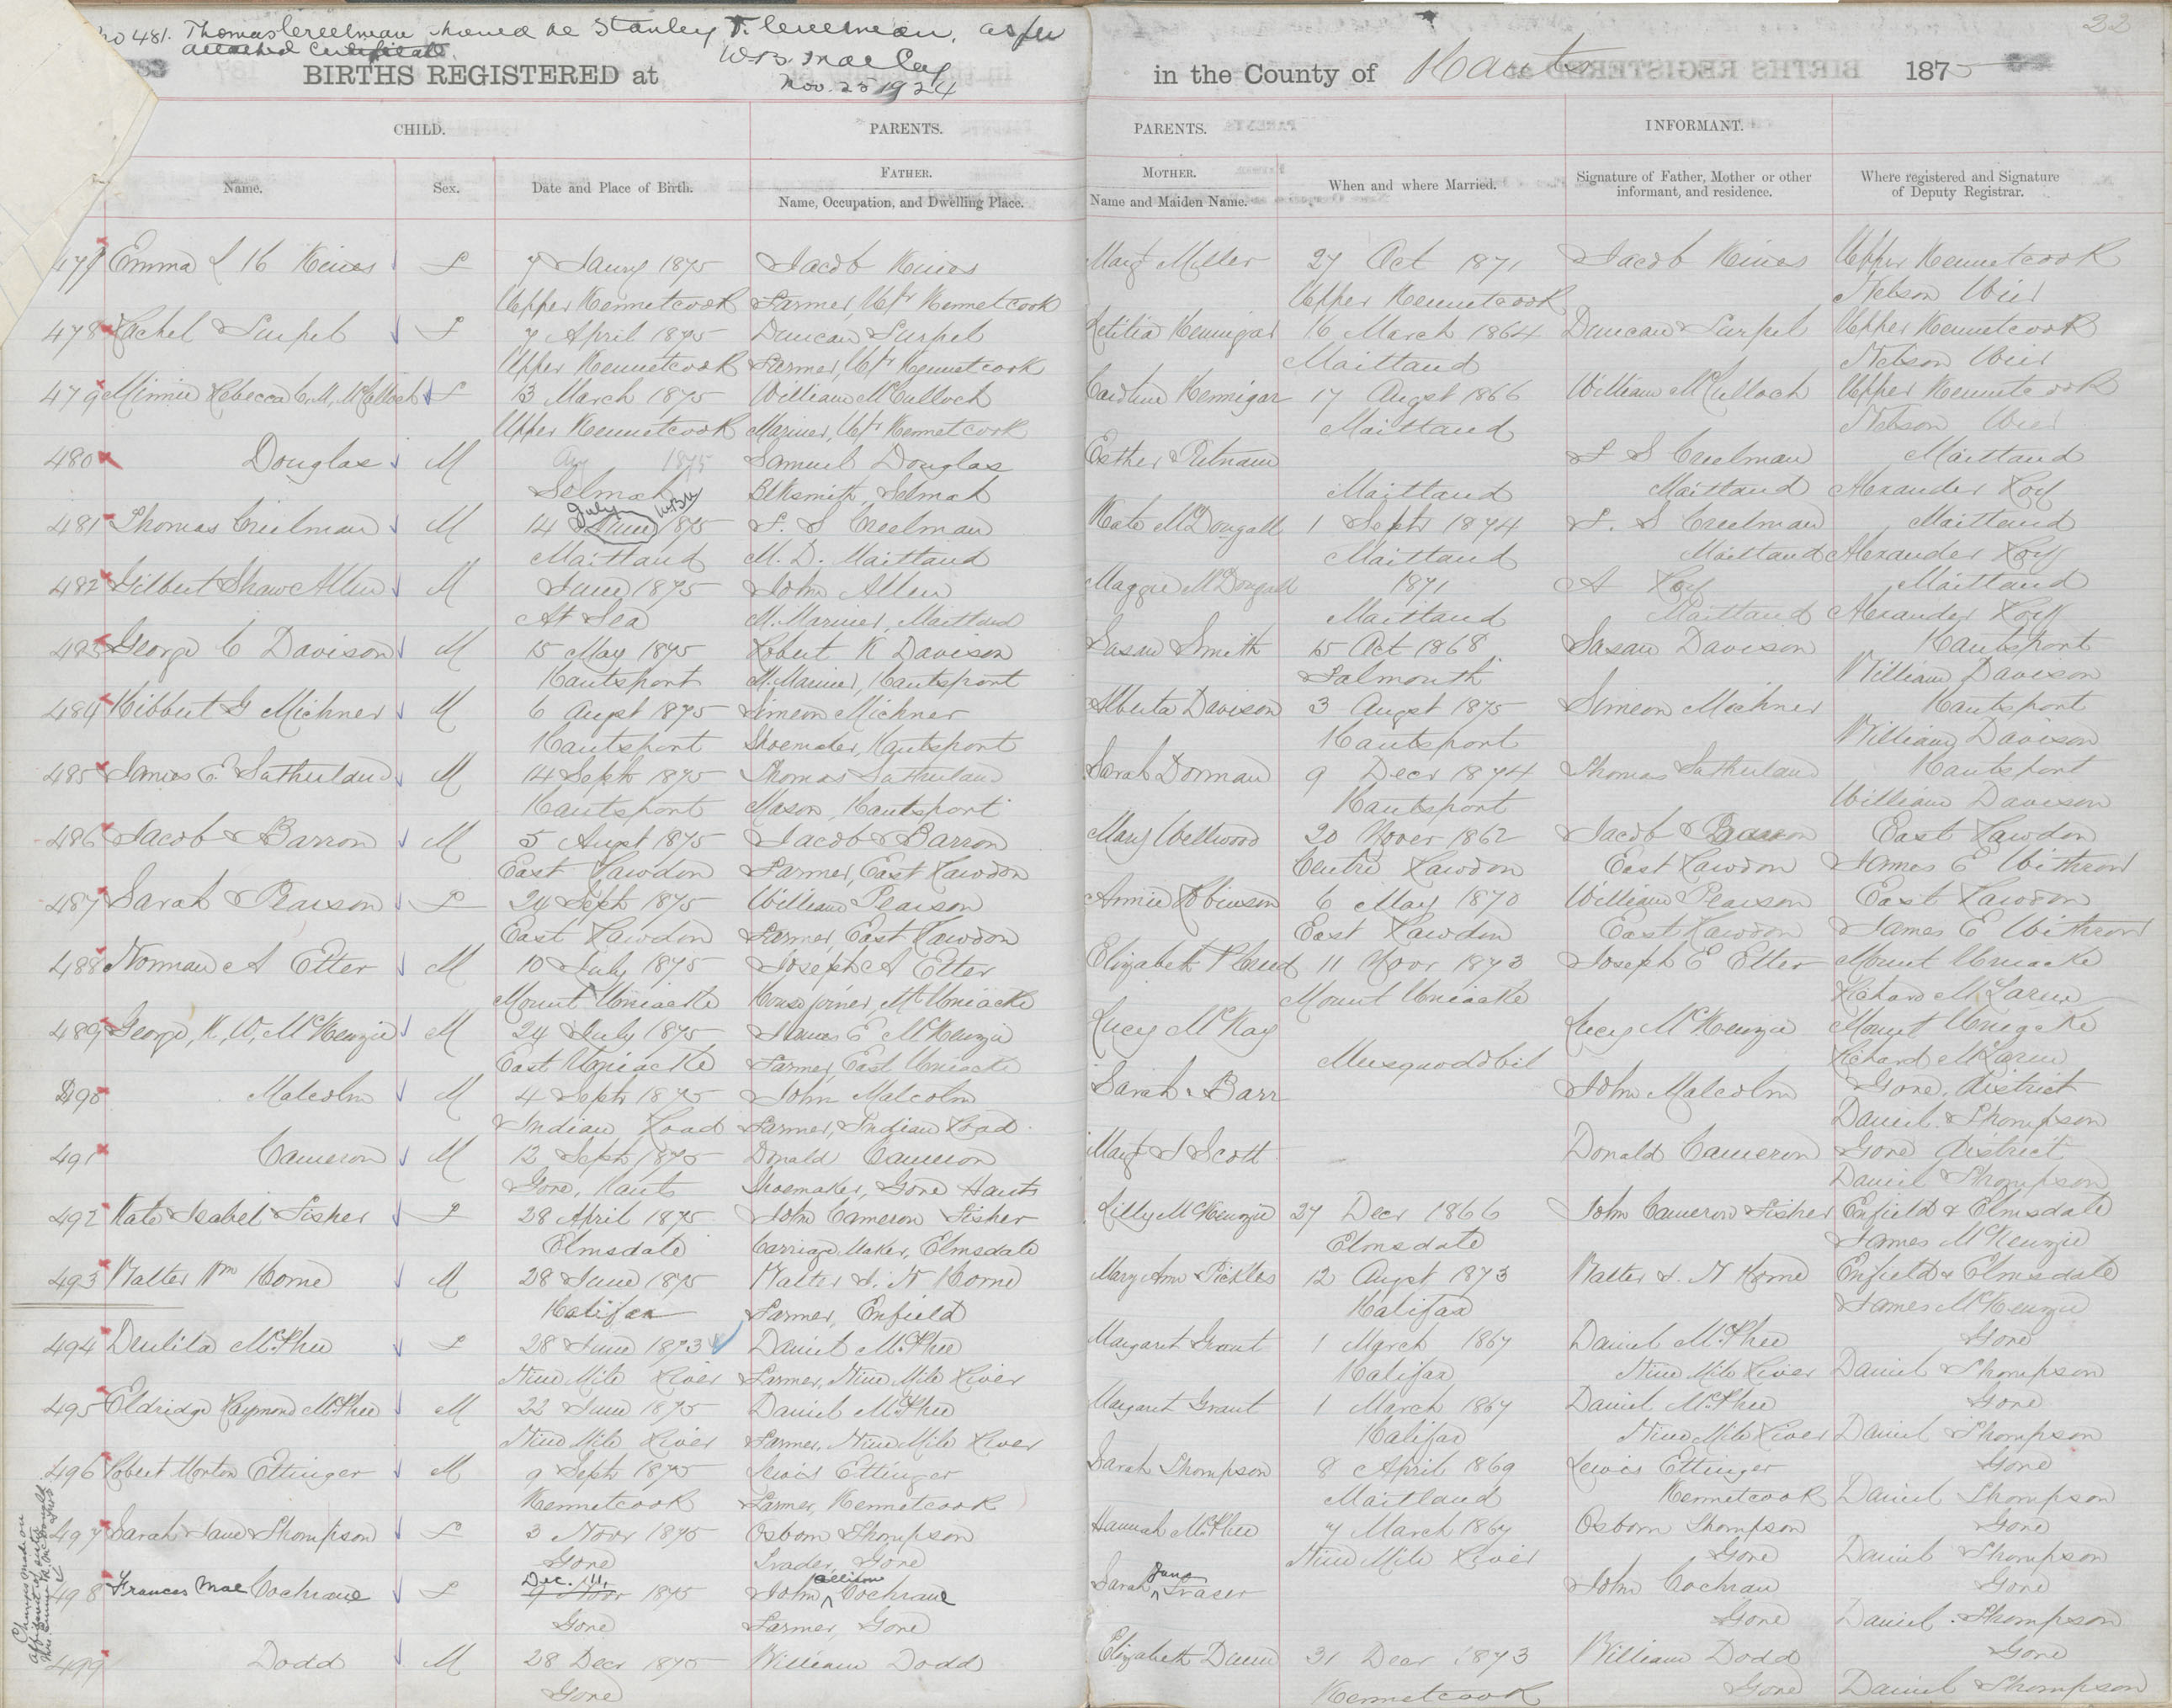 No 481. Thomas Creelman should be Stanley T. Creelman, as per
attached certificate
W.B. MacCoy
Nov. 23 1924
BIRTHS REGISTERED at in the County of Hants 1875
22
CHILD. PARENTS. PARENTS. INFORMANT.
Name. Sex. Date and Place of Birth. FATHER. Name, Occupation, and Dwelling Place. MOTHER. Name and Maiden Name. When and where Married. Signature of Father, Mother or other informant, and residence. Where registered and Signature of Deputy Registrar.
477 Emma L H f 7 Jany 1875 Jacob Margt Miller 27 Oct 1871 Jacob Upper Kennetcook
Upper Kennetcook Farmer, Upr Kennetcook Upper Kennetcook Nelson Wier
478 Rachel f 7 April 1875 Duncan Letitia Hennigar 16 March 1864 Duncan Upper Kennetcook
Upper Kennetcook Farmer, Upr Kennetcook Maitland Nelson Wier
479 Minnie Rebecca C.M. McCulloch f 13 March 1875 William McCulloch Caroline Hennigar 17 Augst 1866 William McCulloch Upper Kennetcook
Upper Kennetcook Mariner, Upr Kennetcook Maitland Nelson Wier
480 Douglas M 1875 Samuel Douglas Esther Putnam F S Creelman Maitland
Selmah Blksmith, Selmah Maitland Maitland Alexander Roy
481 Thomas Creelman M 14 June July WBM 1875 F. S Creelman Kate McDougall 1 Septr 1874 F. S Creelman Maitland
Maitland M. D. Maitland Maitland Maitland Alexander Roy
482 Gilbert Shaw Allen M June 1875 John Allen Maggie McDougall 1871 A Roy Maitland
At Sea M. Mariner, Maitland Maitland Maitland Alexander Roy
483 George C Davison M 15 May 1875 Robert K Davison Susan Smith 15 Oct 1868 Susan Davison Hantsport
Hantsport M. Mariner, Hantsport Falmouth William Davison
484 Hibbert G Michner M 6 Augst 1875 Simeon Michner Alberta Davison 3 Augst 1875 Simeon Michner Hantsport
Hantsport Shoemaker, Hantsport Hantsport William Davison
485 James E. Sutherland M 14 Septr 1875 Thomas Sutherland Sarah Dorman 9 Decr 1874 Thomas Sutherland Hantsport
Hantsport Mason, Hantsport Hantsport William Davison
486 Jacob Barron M 5 Augst 1875 Jacob Barron Mary Wellwood 20 Novr 1862 Jacob Barron East Rawdon
East Rawdon Farmer, East Rawdon Centre Rawdon East Rawdon James E Withrow
487 Sarah Pearson f 24 Septr 1875 William Pearson Annie Robinson 6 May 1870 William Pearson East Rawdon
East Rawdon Farmer, East Rawdon East Rawdon East Rawdon James E Withrow
488 Norman A Etter M 10 July 1875 Joseph A Etter Elizabeth 11 Novr 1873 Joseph E Etter Mount Uniacke
Mount Uniacke House joiner, Mt Uniacke Mount Uniacke Richard McLaren
489 George, K, W, McKenzie M 24 July 1875 James E McKenzie Lucy McKay Lucy McKenzie Mount Uniacke
East Uniacke Farmer, East Uniacke Musquodobit Richard McLaren
490 Malcolm M 4 Septr 1875 John Malcolm Sarah Barr John Malcolm Gore, District
Indian Road Farmer, Indian Road Daniel Thompson
491 Cameron M 13 Septr 1875 Donald Cameron Margt J Scott Donald Cameron Gore District
Gore, Hants Shoemaker, Gore Hants Daniel Thompson
492 Kate Isabel Fisher f 28 April 1875 John Cameron Fisher Lilly McKenzie 27 Decr 1866 John Cameron Fisher Enfield & Elmsdale
Elmsdale Carriage Maker, Elmsdale Elmsdale James McKenzie
493 Walter Wm Horne M 28 June 1875 Walter J. N Horne Mary Ann Pickles 12 Augst 1873 Walter J. N Horne Enfield & Elmsdale
Halifax Farmer, Enfield Halifax James McKenzie
494 McPhee f 28 June 1873 Daniel McPhee Margaret Grant 1 March 1867 Daniel McPhee Gore
Nine Mile River Farmer, Nine Mile River Halifax Nine Mile River Daniel Thompson
495 Eldridge Raymond McPhee M 22 June 1875 Daniel McPhee Margaret Grant 1 March 1867 Daniel McPhee Gore
Nine Mile River Farmer, Nine Mile River Halifax Nine Mile River Daniel Thompson
496 Robert Morton Ettinger M 9 Septr 1875 Lewis Ettinger Sarah Thompson 8 April 1869 Lewis Ettinger Gore
Kennetcook Farmer, Kennetcook Maitland Kennetcook Daniel Thompson
497 Sarah Jane Thompson f 3 Novr 1875 Osborn Thompson Hannah McPhee 7 March 1867 Osborn Thompson Gore
Gore Trader, Gore Nine Mile River Gore Daniel Thompson
498 Frances Mae Cochrane f Dec. 11, 9 Novr 1875 John Allison Cochrane Sarah Jane Fraser John Cochran Gore
Gore Farmer, Gore Gore Daniel Thompson
499 Dodd M 28 Decr 1875 William Dodd Elizabeth 31 Decr 1873 William Dodd Gore
Gore Kennetcook Gore Daniel Thompson
Change made on
affidavit of